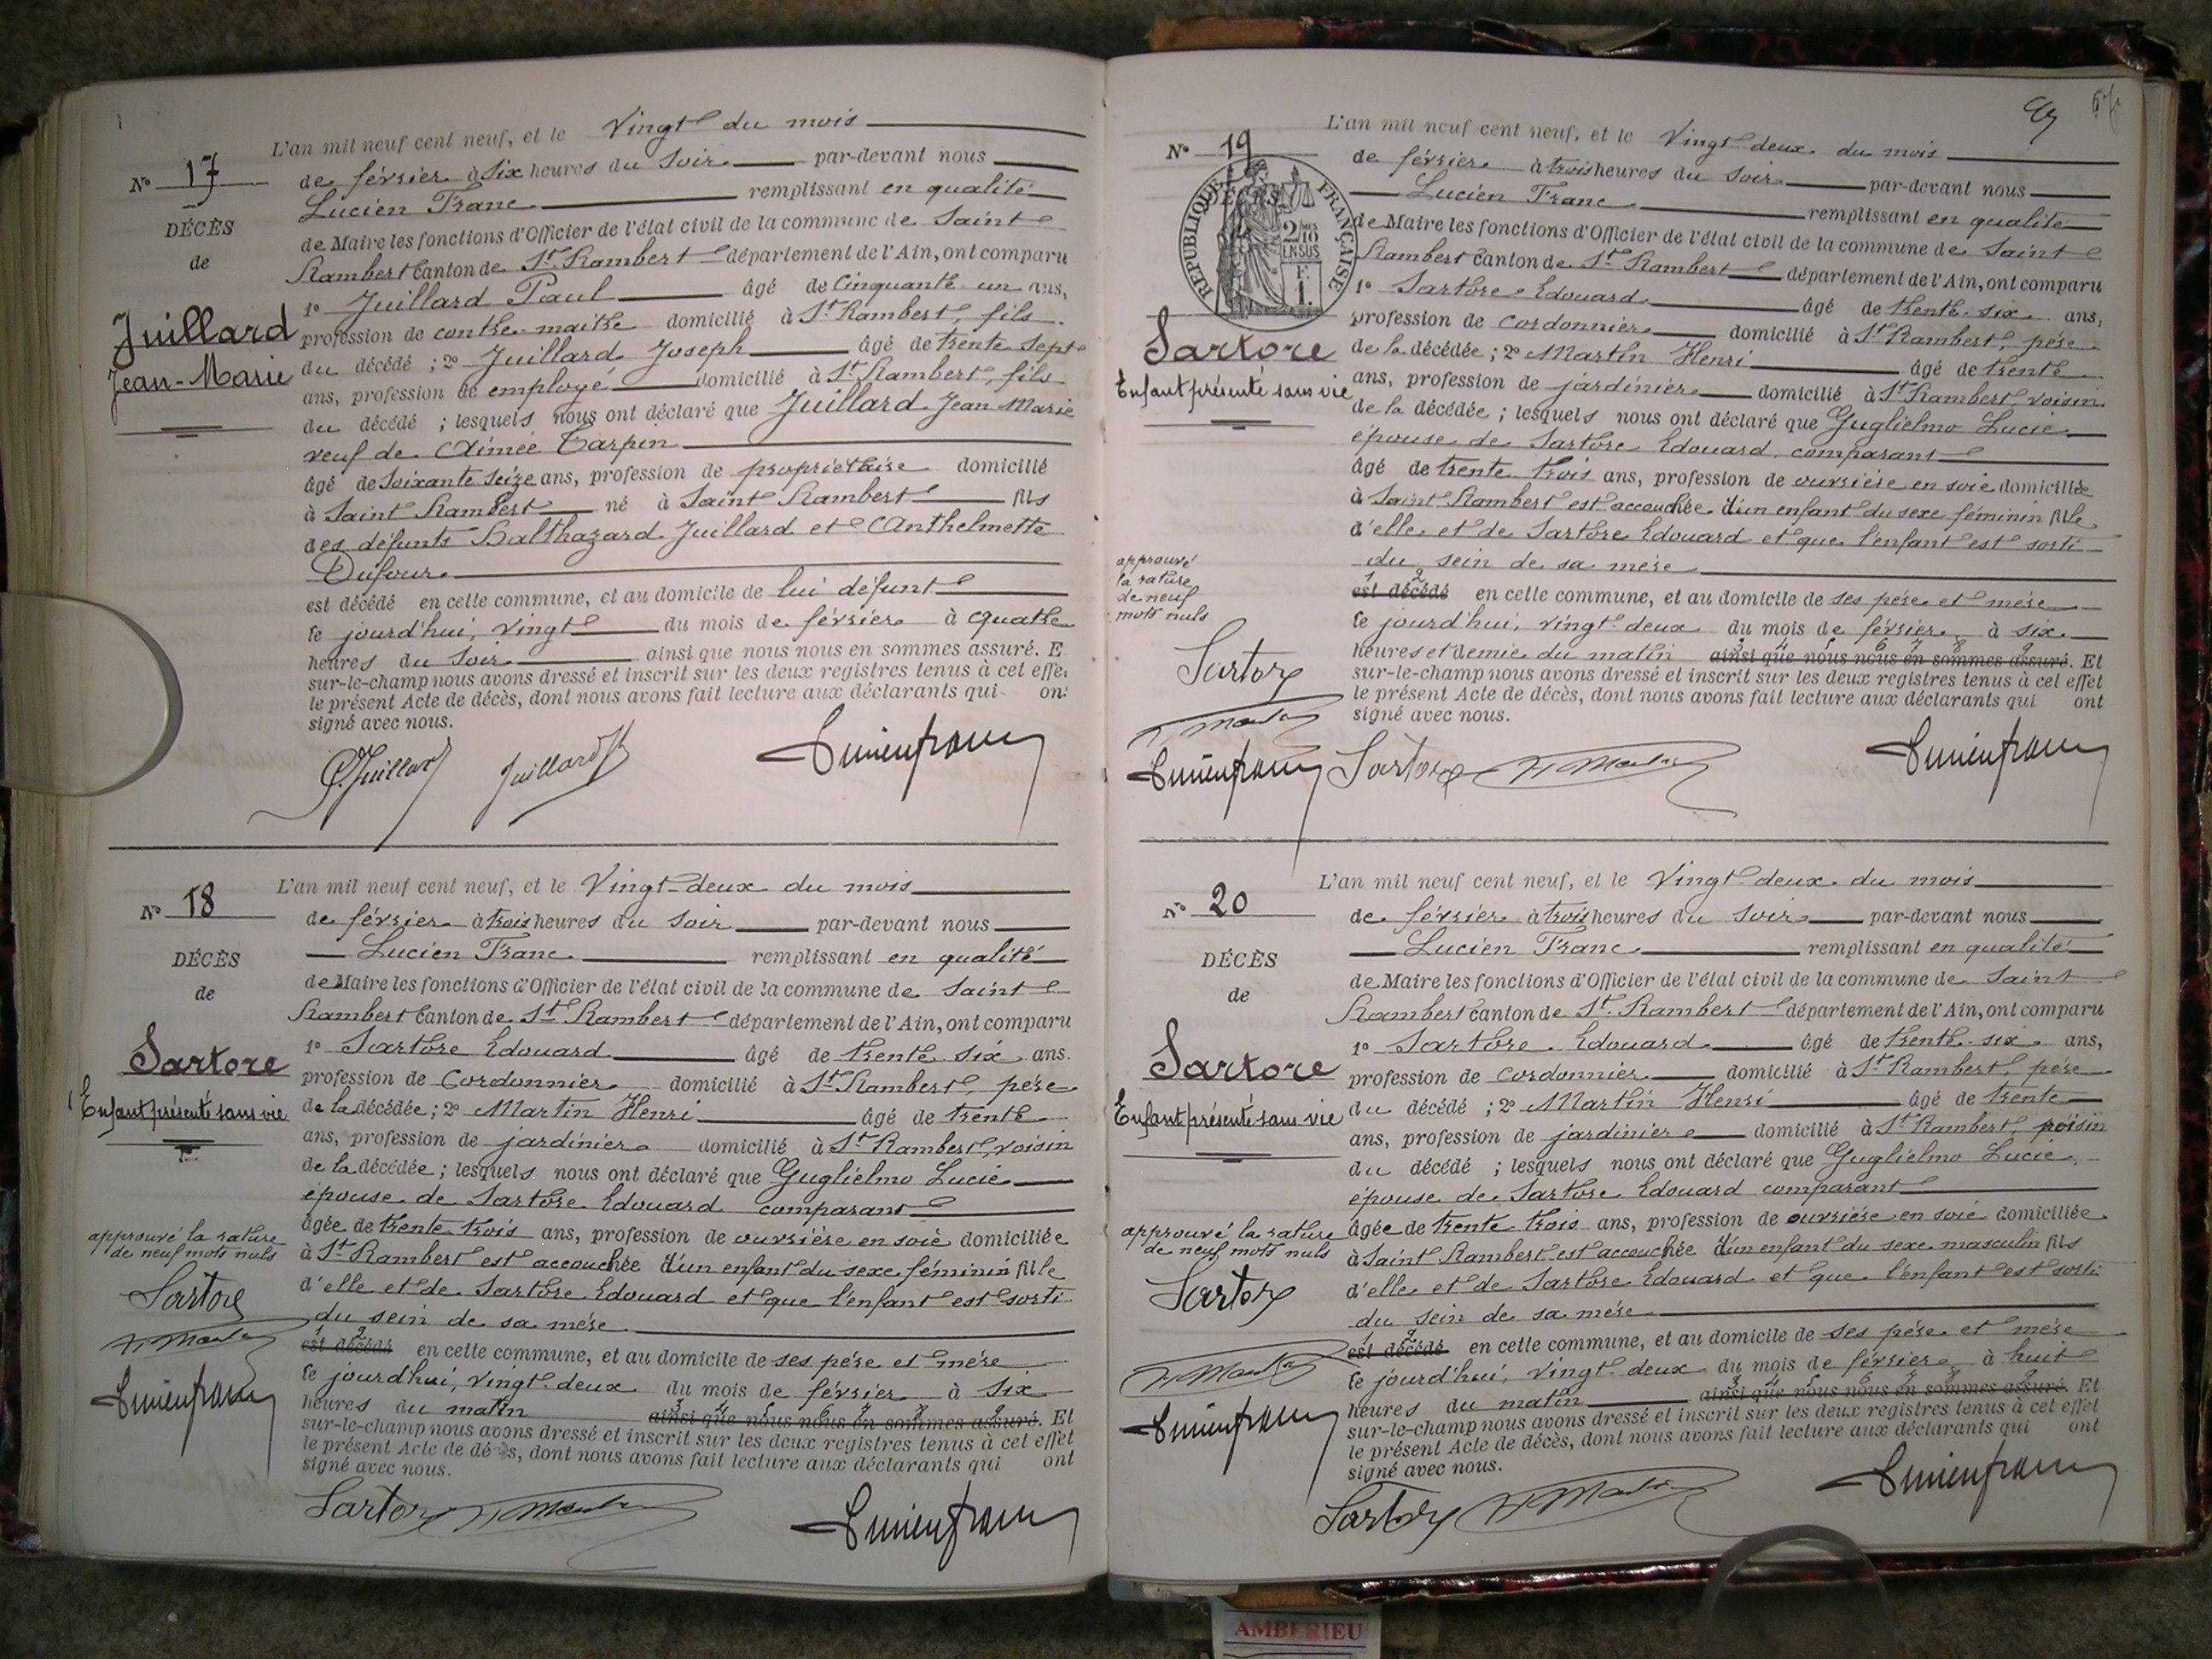 N° 17
DÉCÈS
de
Juillard
Jean-Marie
L'an mil neuf cent neuf, et le Vingt du mois
de février à six heures du soir par-devant nous
Lucien Franc remplissant en qualité
de Maire les fonctions d'Officier de l'état civil de la commune de Saint
Rambert Canton de St. Rambert département de l'Ain, ont comparu
1° Juillard Paul âgé de Cinquante un ans,
profession de contre-maitre domicilié à St. Rambert, fils
du décédé ; 2° Juillard Joseph âgé de trente sept
ans, profession de employé domicilié à St. Rambert, fils
du décédé ; lesquels nous ont déclaré que Juillard Jean Marie
veuf de Aimée Tarpin
âgé de soixante seize ans, profession de propriétaire domicilié
à Saint Rambert né à Saint Rambert fils
des défunts Balthazard Juillard et Anthelmette
Dufour
est décédé en cette commune, et au domicile de lui défunt
le jourd'hui, vingt du mois de février à quatre
heures du soir ainsi que nous nous en sommes assuré. E
sur-le-champ nous avons dressé et inscrit sur les deux registres tenus à cet effe
le présent Acte de décès, dont nous avons fait lecture aux déclarants qui on
signé avec nous.
P. Juillard Juillard J Lucien franc
N° 18
DÉCÈS
de
Sartore
Enfant présenté sans vie
approuvé la rature
de neuf mots nuls
Sartore
H. Martin
Lucien franc
L'an mil neuf cent neuf, et le Vingt-deux du mois
de février à trois heures du soir par-devant nous
Lucien Franc remplissant en qualité
de Maire les fonctions d'Officier de l'état civil de la commune de Saint
Rambert Canton de St. Rambert département de l'Ain, ont comparu
1° Sartore Edouard âgé de trente six ans.
profession de Cordonnier domicilié à St. Rambert, père
de la décédée ; 2° Martin Henri âgé de trente
ans, profession de jardinier domicilié à St. Rambert, voisin
de la décédée ; lesquels nous ont déclaré que Guglielmo Lucie
épouse de Sartore Edouard comparant
âgée de trente trois ans, profession de ouvrière en soie domiciliée
à St. Rambert est accouchée d'un enfant du sexe féminin fille
d'elle et de Sartore Edouard et que l'enfant est sorti
du sein de sa mère
1 2
est décédé en cette commune, et au domicile de ses père et mère
le jourd'hui, vingt-deux du mois de février à six
3 4 5 6 7 8 9
heures du matin ainsi que nous nous en sommes assuré. Et
sur-le-champ nous avons dressé et inscrit sur les deux registres tenus à cet effet
le présent Acte de décès, dont nous avons fait lecture aux déclarants qui ont
signé avec nous.
Sartore H. Martin Lucien franc
N° 19
RÉPUBLIQUE FRANÇAISE
2/10
EN SUS
F.
1.
Sartore
Enfant présenté sans vie
approuvé
la rature
de neuf
mots nuls
Sartore
H. Martin
Lucien franc
L'an mil neuf cent neuf, et le Vingt deux du mois
de février à trois heures du soir par-devant nous
Lucien Franc remplissant en qualité
de Maire les fonctions d'Officier de l'état civil de la commune de Saint
Rambert Canton de St. Rambert département de l'Ain, ont comparu
1° Sartore Edouard âgé de trente-six ans,
profession de cordonnier domicilié à St. Rambert, père
de la décédée ; 2° Martin Henri âgé de trente
ans, profession de jardinier domicilié à St. Rambert, voisin
de la décédée ; lesquels nous ont déclaré que Guglielmo Lucie
épouse de Sartore Edouard comparant
âgé de trente trois ans, profession de ouvrière en soie domiciliée
à Saint Rambert est accouchée d'un enfant du sexe féminin fille
d'elle et de Sartore Edouard et que l'enfant est sorti
du sein de sa mère
1 2
est décédé en cette commune, et au domicile de ses père et mère
le jourd'hui, vingt-deux du mois de février à six
3 4 5 6 7 8 9
heures et demie du matin ainsi que nous nous en sommes assuré. Et
sur-le-champ nous avons dressé et inscrit sur les deux registres tenus à cet effet
le présent Acte de décès, dont nous avons fait lecture aux déclarants qui ont
signé avec nous.
Sartore H. Martin Lucien franc
N° 20
DÉCÈS
de
Sartore
Enfant présenté sans vie
approuvé la rature
de neuf mots nuls
Sartore
H. Martin
Lucien franc
L'an mil neuf cent neuf, et le Vingt-deux du mois
de février à trois heures du soir par-devant nous
Lucien Franc remplissant en qualité
de Maire les fonctions d'Officier de l'état civil de la commune de Saint
Rambert canton de St. Rambert département de l'Ain, ont comparu
1° Sartore Edouard âgé de trente-six ans,
profession de cordonnier domicilié à St. Rambert, père
du décédé ; 2° Martin Henri âgé de trente
ans, profession de jardinier domicilié à St. Rambert, voisin
du décédé ; lesquels nous ont déclaré que Guglielmo Lucie
épouse de Sartore Edouard comparant
âgée de trente-trois ans, profession de ouvrière en soie domiciliée
à Saint Rambert est accouchée d'un enfant du sexe masculin fils
d'elle et de Sartore Edouard et que l'enfant est sorti
du sein de sa mère
1 2
est décédé en cette commune, et au domicile de ses père et mère
le jourd'hui, vingt-deux du mois de février à huit
3 4 5 6 7 8 9
heures du matin ainsi que nous nous en sommes assuré. Et
sur-le-champ nous avons dressé et inscrit sur les deux registres tenus à cet effet
le présent Acte de décès, dont nous avons fait lecture aux déclarants qui ont
signé avec nous.
Sartore H. Martin Lucien franc
AMBERIEU